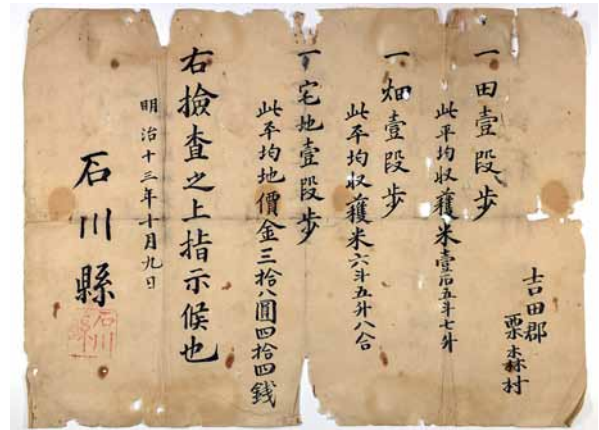 吉田郡
栗森村
一田壹段歩
此平均収穫米壹石五斗七升
一畑壹段歩
此平均収穫米六斗五升八合
一宅地壹段歩
此平均地價金三拾八圓四拾四錢
右撿査之上指示候也
明治十三年十月九日
石川縣
石川
縣